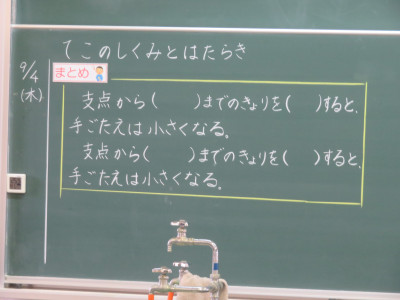 てこのしくみとはたらき
9/4
(木)
まとめ
支点から(　　)までのきょりを(　)すると、
手ごたえは小さくなる。
支点から(　　)までのきょりを(　)すると、
手ごたえは小さくなる。